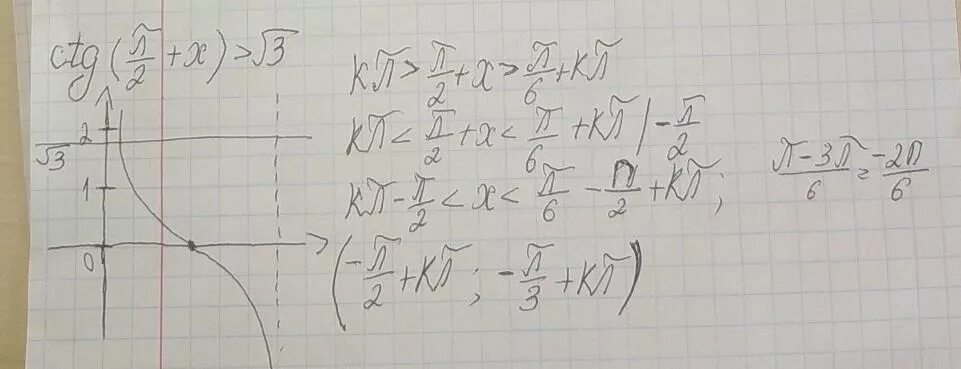 ctg(π/2 + x) > √3
kπ > π/2 + x > π/6 + kπ
kπ < π/2 + x < π/6 + kπ | - π/2
kπ - π/2 < x < π/6 - π/2 + kπ; (π - 3π)/6 = -2π/6
(-π/2 + kπ; -π/3 + kπ)
2
√3
1
0